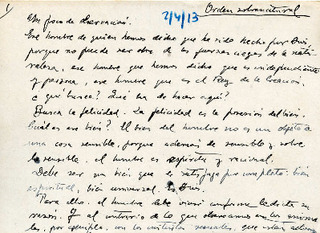 1/
Orden sobrenatural
2/4/13
Un poco de
Ese hombre de quien hemos dicho que ha sido hecho por Dios,
porque no puede ser obra de las fuerzas ciegas de la natu-
raleza, ese hombre que hemos dicho que es independiente
y persona, ese hombre que es el Rey de la Creación.
¿qué busca? Qué ha de hacer aquí?
Busca la felicidad. La felicidad es la posesión del bien.
Cuál es ese bien? El bien del hombre no es un objeto o
una cosa sensible, porque además de sensible y sobre
lo sensible, el hombre es espíritu y racional.
Debe ser un bien que es satisfaga por completo: bien
espiritual, bien universal, es Dios.
Para ello, el hombre debe vivir conforme le dicta su
razón. Y al contrario de lo que observamos en los anima-
les, por ejemplo, con los instintos sexuales, que